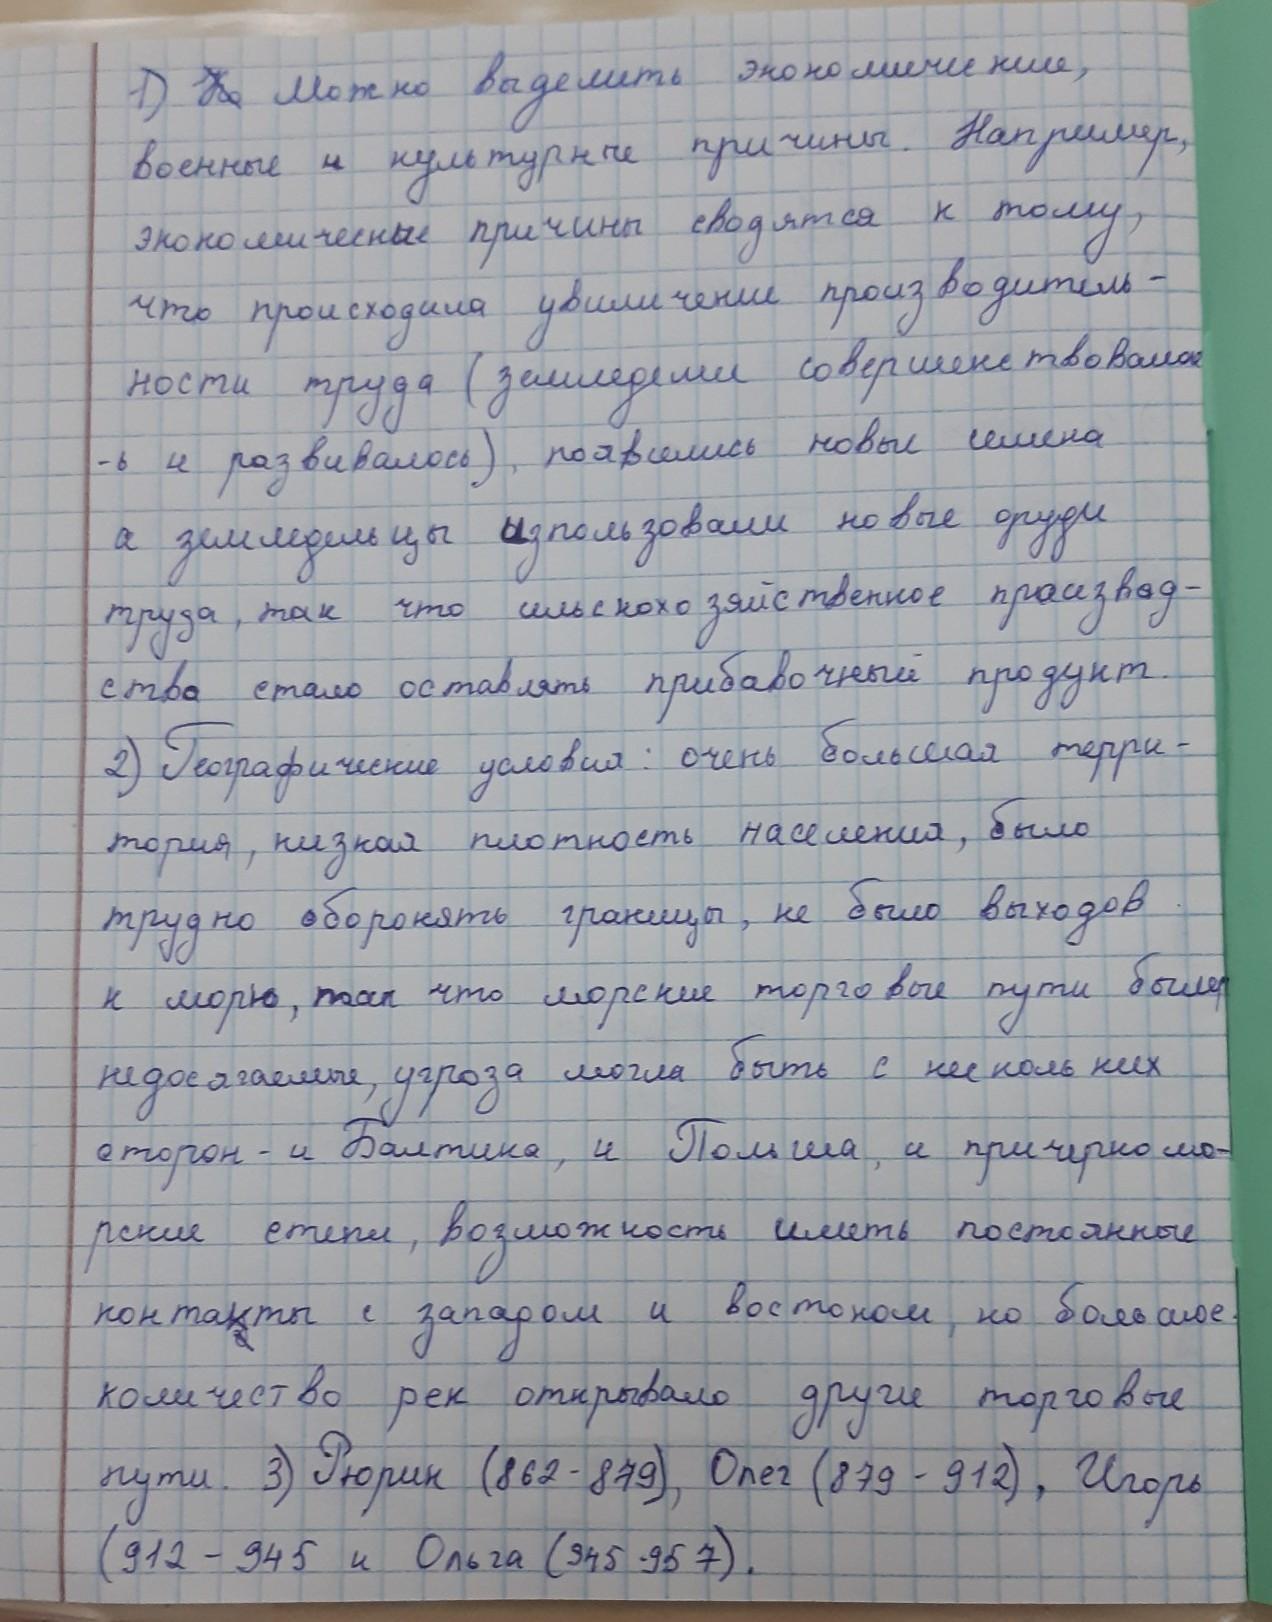 1) Можно выделить экономические,
военные и культурные причины. Например,
экономические причины сводятся к тому,
что происходила увиличение производитель-
ности труда (земледели совершенствовалос
-ь и развивалось), появились новые семена
а земледельцы изпользовали новые оруди
труда, так что сельскохозяйственное праизвад-
ства стало оставлять прибавочный продукт.
2) Географические условия: очень большая терри-
тория, низкая плотность населения, было
трудно оборонять границы, не было выходов
к морю, так что морские торговые пути были
недосягаемые, угроза могла быть с нескольких
сторон - и Балтика, и Польша, и причерномо-
рские степи, возможность иметь постоянные
контакты с западом и востоком, но большое
количество рек открывало другие торговые
пути. 3) Рюрик (862-879), Олег (879-912), Игорь
(912-945 и Ольга (945-957).